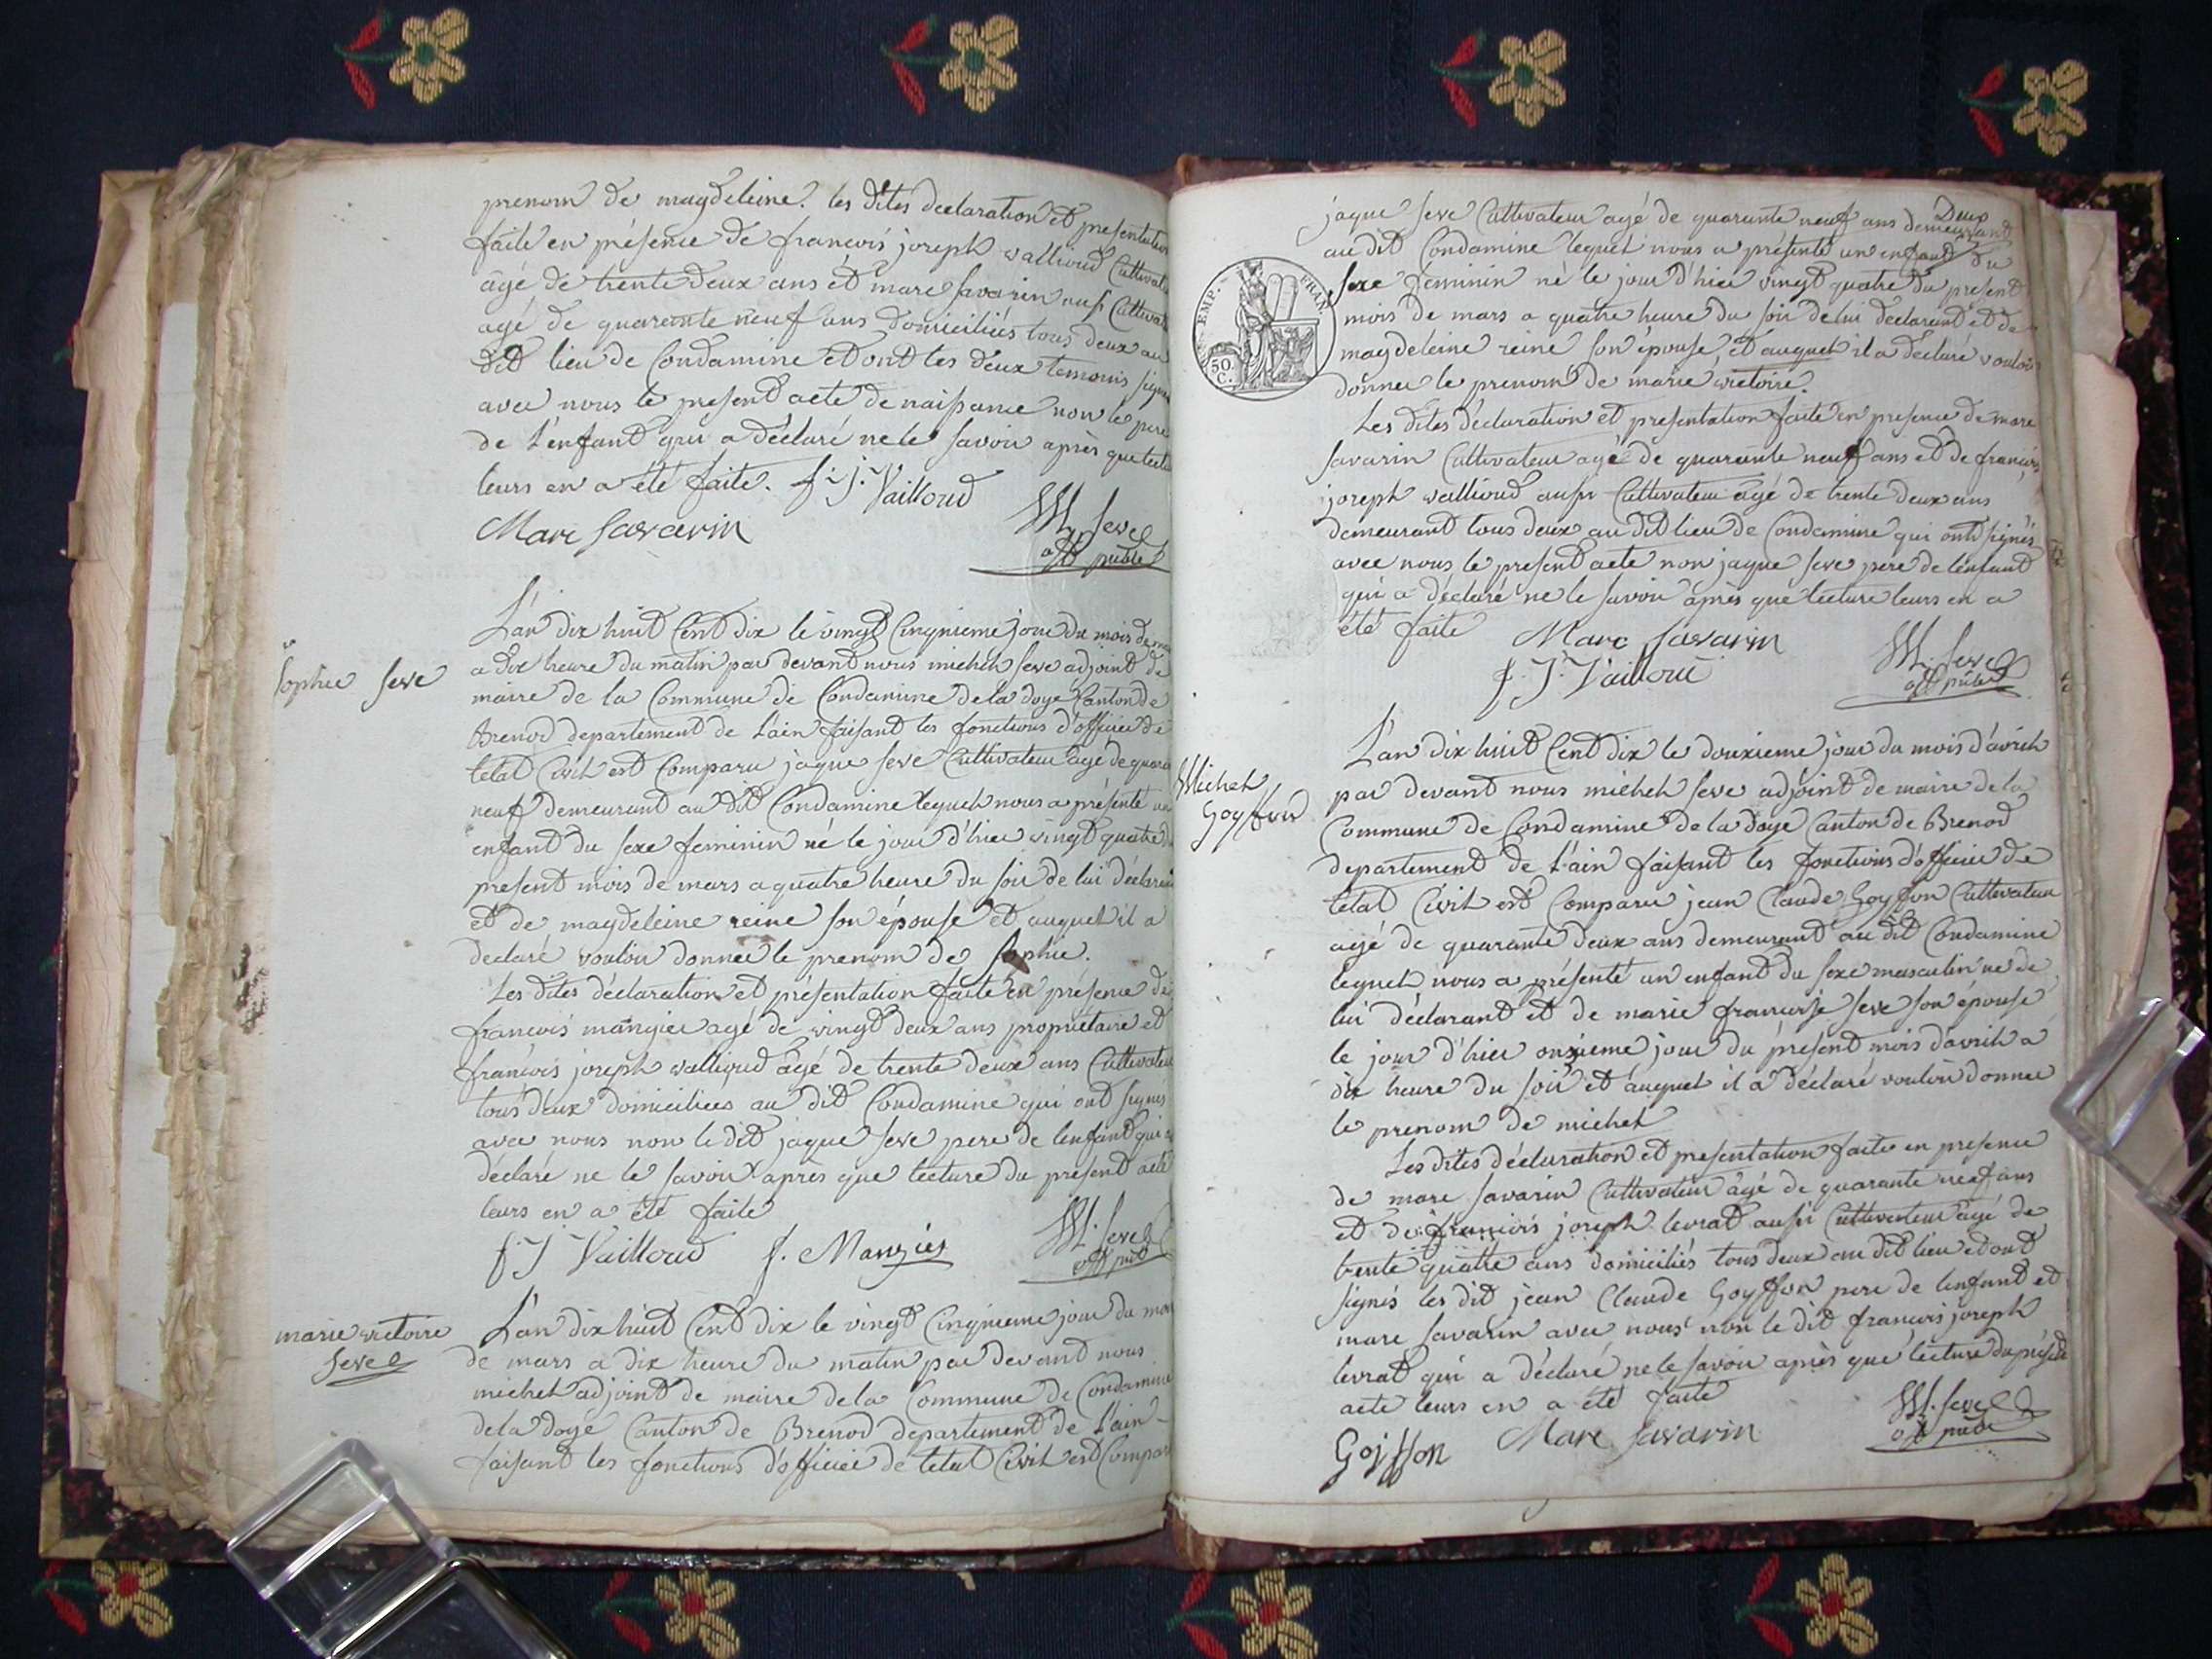 prenom de magdeleine. les dites declaration et presentation
faite en présence de francois joseph vallioud Cultivat
agé de trente deux ans et marc savarin aussi Cultivat
agé de quarente neuf ans domiciliés tous deux au
dit lieu de Condamine et ont les deux temoins signé
avec nous le present acte de naissance non le pere
de l'enfant qui a déclaré ne le savoir après que lectu
leurs en a été faite. f. j. Vailloud
Marc Savarin
M Seve
adt
Sophie Seve
L'an dix huit Cent dix le vingt Cinquieme jour du mois de
a dix heure du matin par devant nous michel seve adjoint de
maire de la Commune de Condamine de la doye Canton de
Brenod departement de L'ain faisant les fonctions d'officier de
letat Civil est Comparu jaque seve Cultivateur agé de quara
neuf demeurant au dit Condamine lequel nous a présenté un
enfant du sexe feminin né le jour d'hier vingt quatre d
present mois de mars a quatre heure du soir de lui déclarant
et de magdeleine reine son épouse et auquel il a
declaré vouloir donner le prenom de Sophie.
Les dites déclaration et présentation faite en présence de
francois mangier agé de vingt deux ans propriétaire et
francois joseph vallioud agé de trente deux ans Cultivateur
tous deux domiciliees au dit Condamine qui ont signés
avec nous non le dit jaque seve pere de lenfant qui a
déclaré ne le savoir après que lecture du présent acte
leurs en a été faite
f. J Vailloud f. Mangies M. Seve
adt
marie victoire
Seve
L'an dix huit Cent dix le vingt Cinquieme jour du moi
de mars a dix heure du matin par devant nous
michel adjoint de maire de la Commune de Condamine
de la doye Canton de Brenod departement de L'ain
faisant les fonctions d'officier de letat Civil est Compar
Deux
jaque seve Cultivateur agé de quarante neuf ans demeurant
au dit Condamine lequel nous a présenté un enfant du
sexe feminin né le jour d'hier vingt quatre du present
mois de mars a quatre heure du soir de lui declarant et de
magdeleine reine son épouse, et auquel il a declaré vouloir
donner le prenom de marie victoire.
EMP. FRAN.
50
C.
Les dites déclaration et presentation faite en presence de marc
savarin Cultivateur agé de quarante neuf ans et de francois
joseph vallioud aussi Cultivateur agé de trente deux ans
demeurant tous deux au dit lieu de Condamine qui ont signés
avec nous le present acte non jaque seve pere de lenfant
qui a déclaré ne le savoir après que lecture leurs en a
été faite Marc Savarin
f. J. Vailloud M. Seve
adt
Michel
Goyffon
L'an dix huit Cent dix le douxieme jour du mois d'avril
par devant nous michel seve adjoint de maire de la
Commune de Condamine de la doye Canton de Brenod
departement de L'ain faisant les fonctions d'officier de
letat Civil est Comparu jean Claude Goyffon Cultivateur
agé de quarante deux ans demeurant au dit Condamine
lequel nous a présenté un enfant du sexe masculin né de
lui déclarant et de marie francoise seve son épouse
le jour d'hier onzieme jour du présent mois d'avril a
dix heure du soir et auquel il a déclaré vouloir donner
le prenom de michel
Les dites déclaration et presentation faite en presence
de marc savarin Cultivateur agé de quarante neuf ans
et de francois joseph levrat aussi Cultivateur agé de
trente quatre ans domiciliés tous deux au dit lieu et ont
signés les dit jean Claude Goyffon pere de lenfant et
marc savarin avec nous non le dit francois joseph
levrat qui a déclaré ne le savoir après que lecture du présent
acte leurs en a été faite
Goiffon Marc Savarin M. Seve
adt